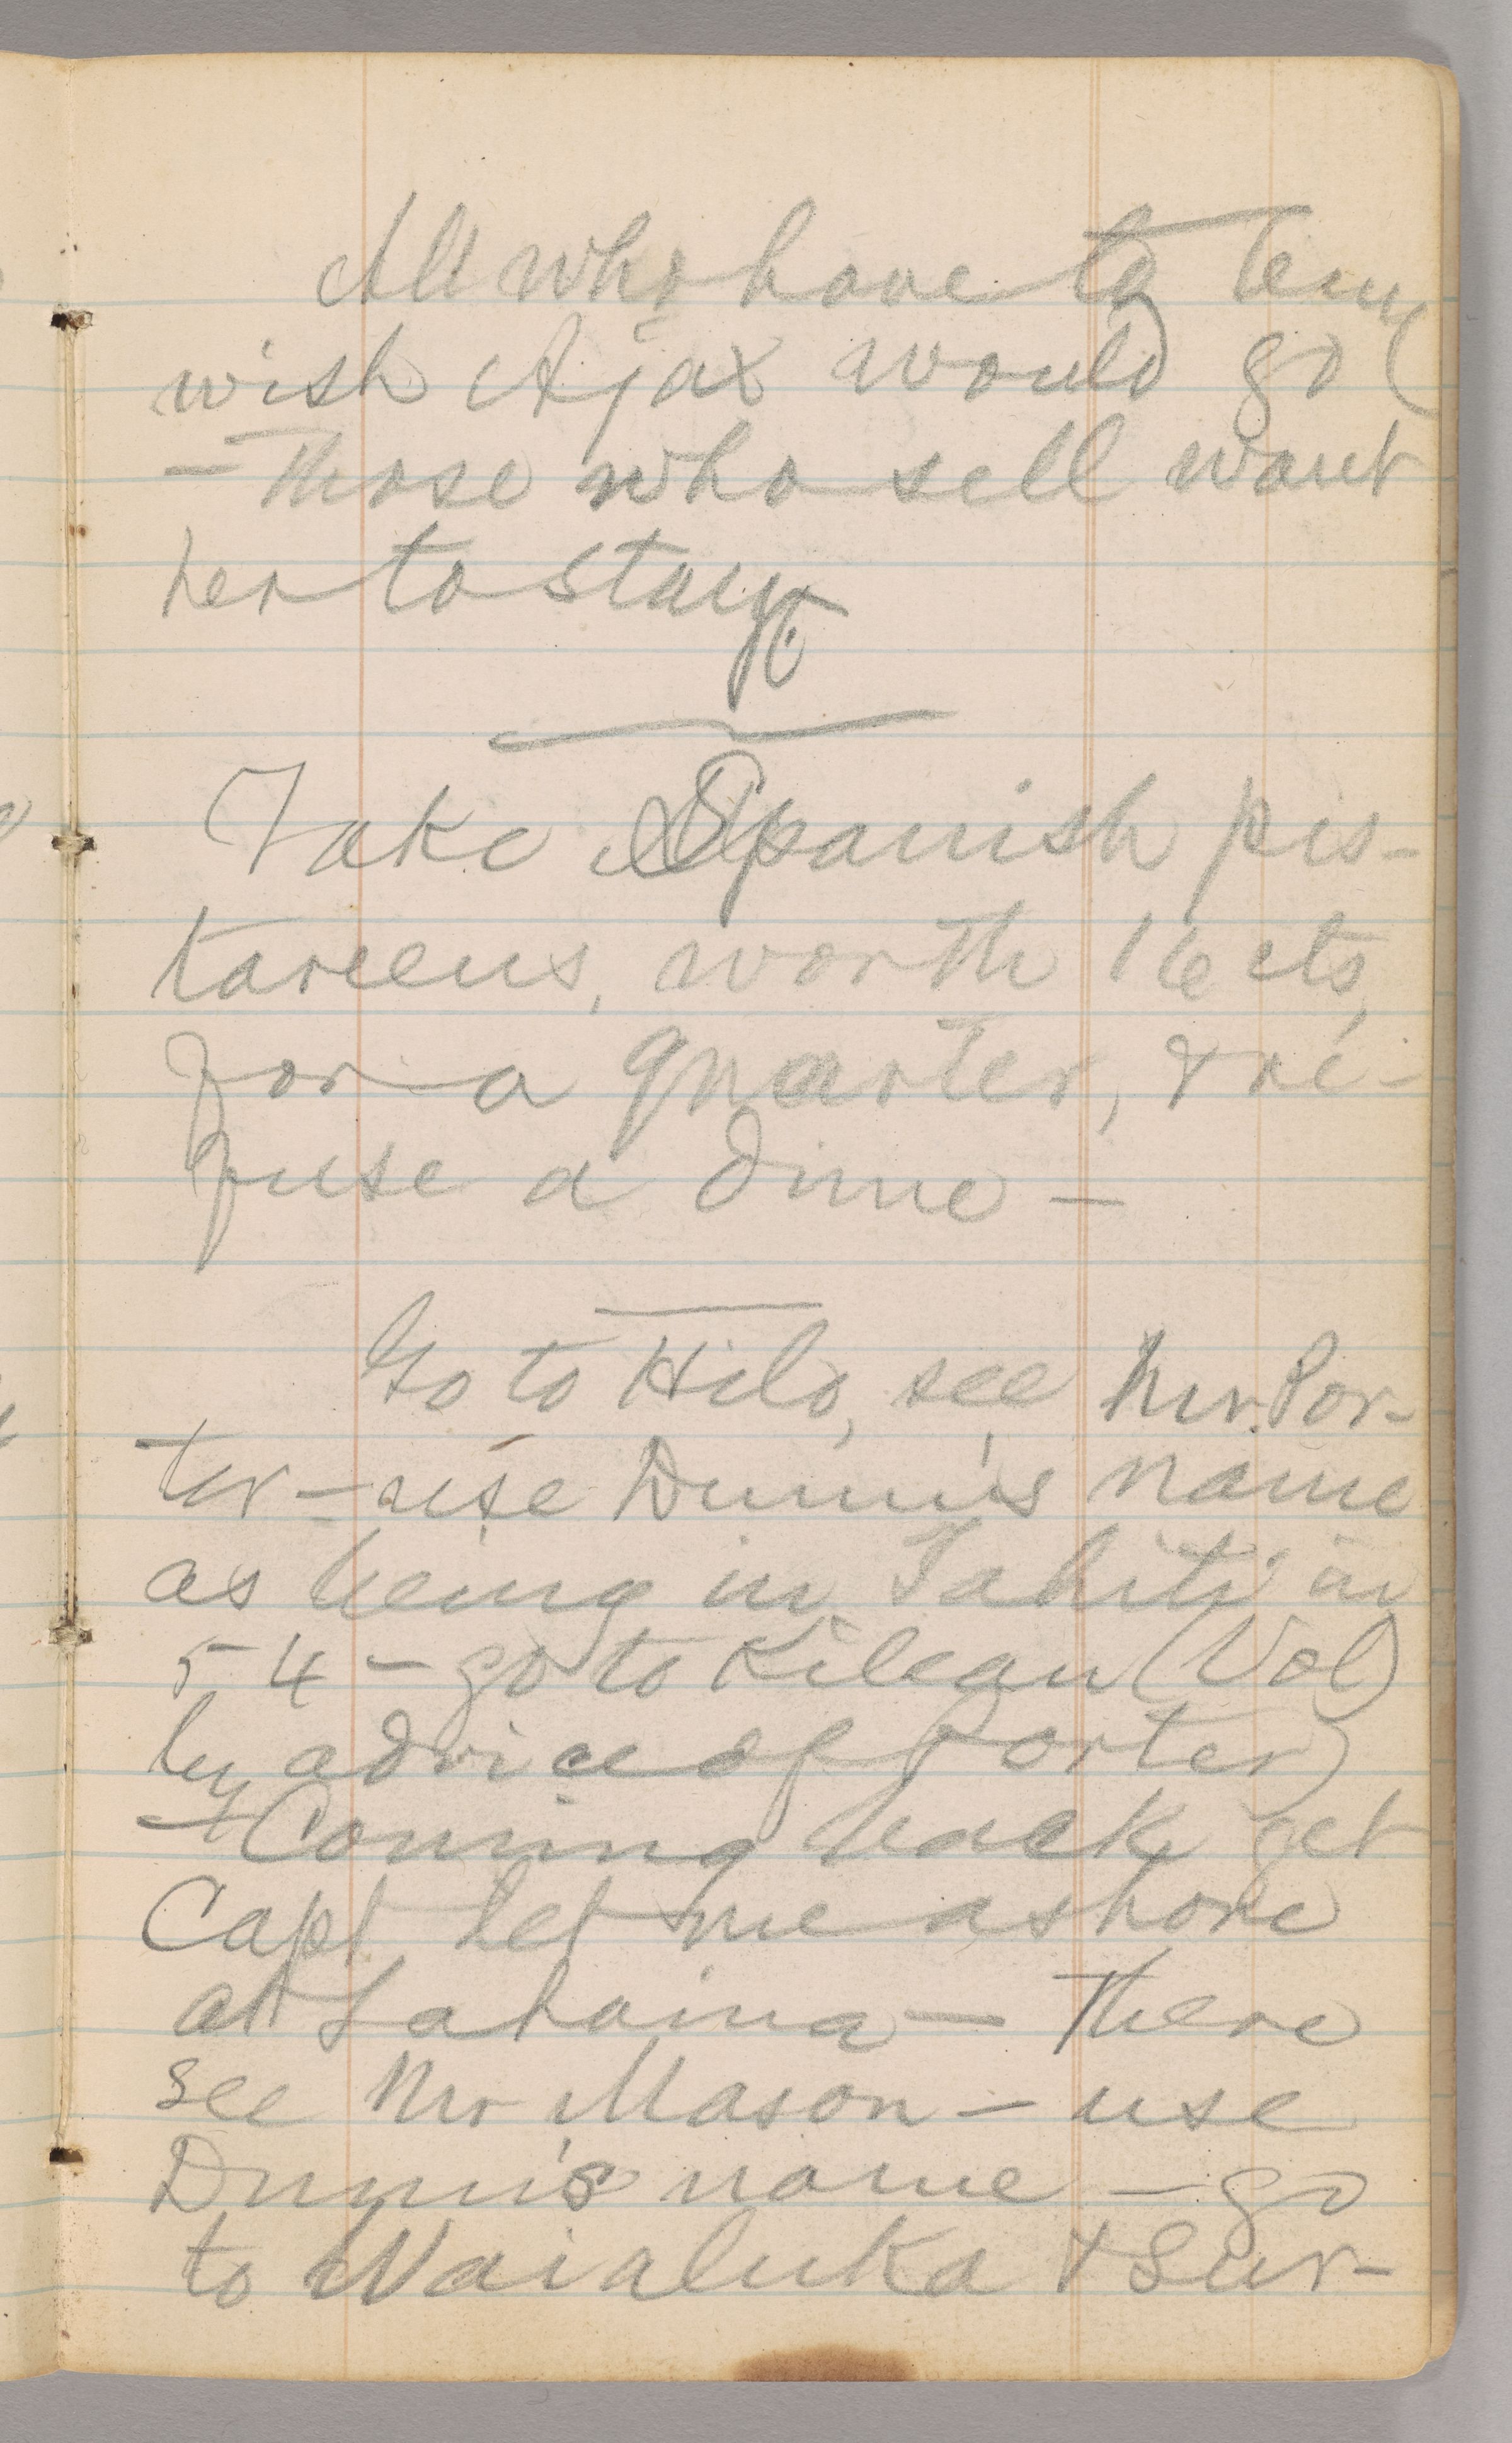 All who have to buy
wish Ajax would go
— Those who sell want
her to stay.
Take Spanish pis-
tareens, worth 16 cts,
for a quarter, & re-
fuse a dime —
Go to Hilo, see Mr. Por-
ter — use Dunn's name
as being in Tahiti in
54 — go to Kileau (Vol)
by advice of Porter)
— Coming back get
Capt. let me ashore
at Lahaina — There
see Mr Mason — use
Dunn's name — go
to Waialuka & Sur-